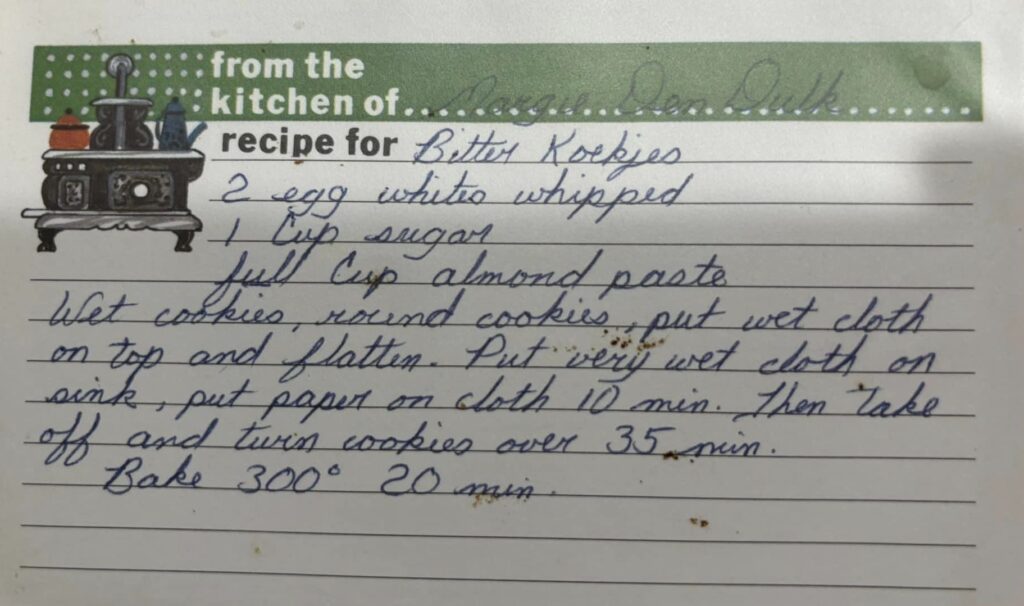 from the
kitchen of... Margie Den Dulk
recipe for Bitter Koekjes
2 egg whites whipped
1 Cup sugar
full Cup almond paste
Wet cookies, round cookies, put wet cloth
on top and flatten. Put very wet cloth on
sink, put paper on cloth 10 min. Then take
off and turn cookies over 35 min.
Bake 300° 20 min.